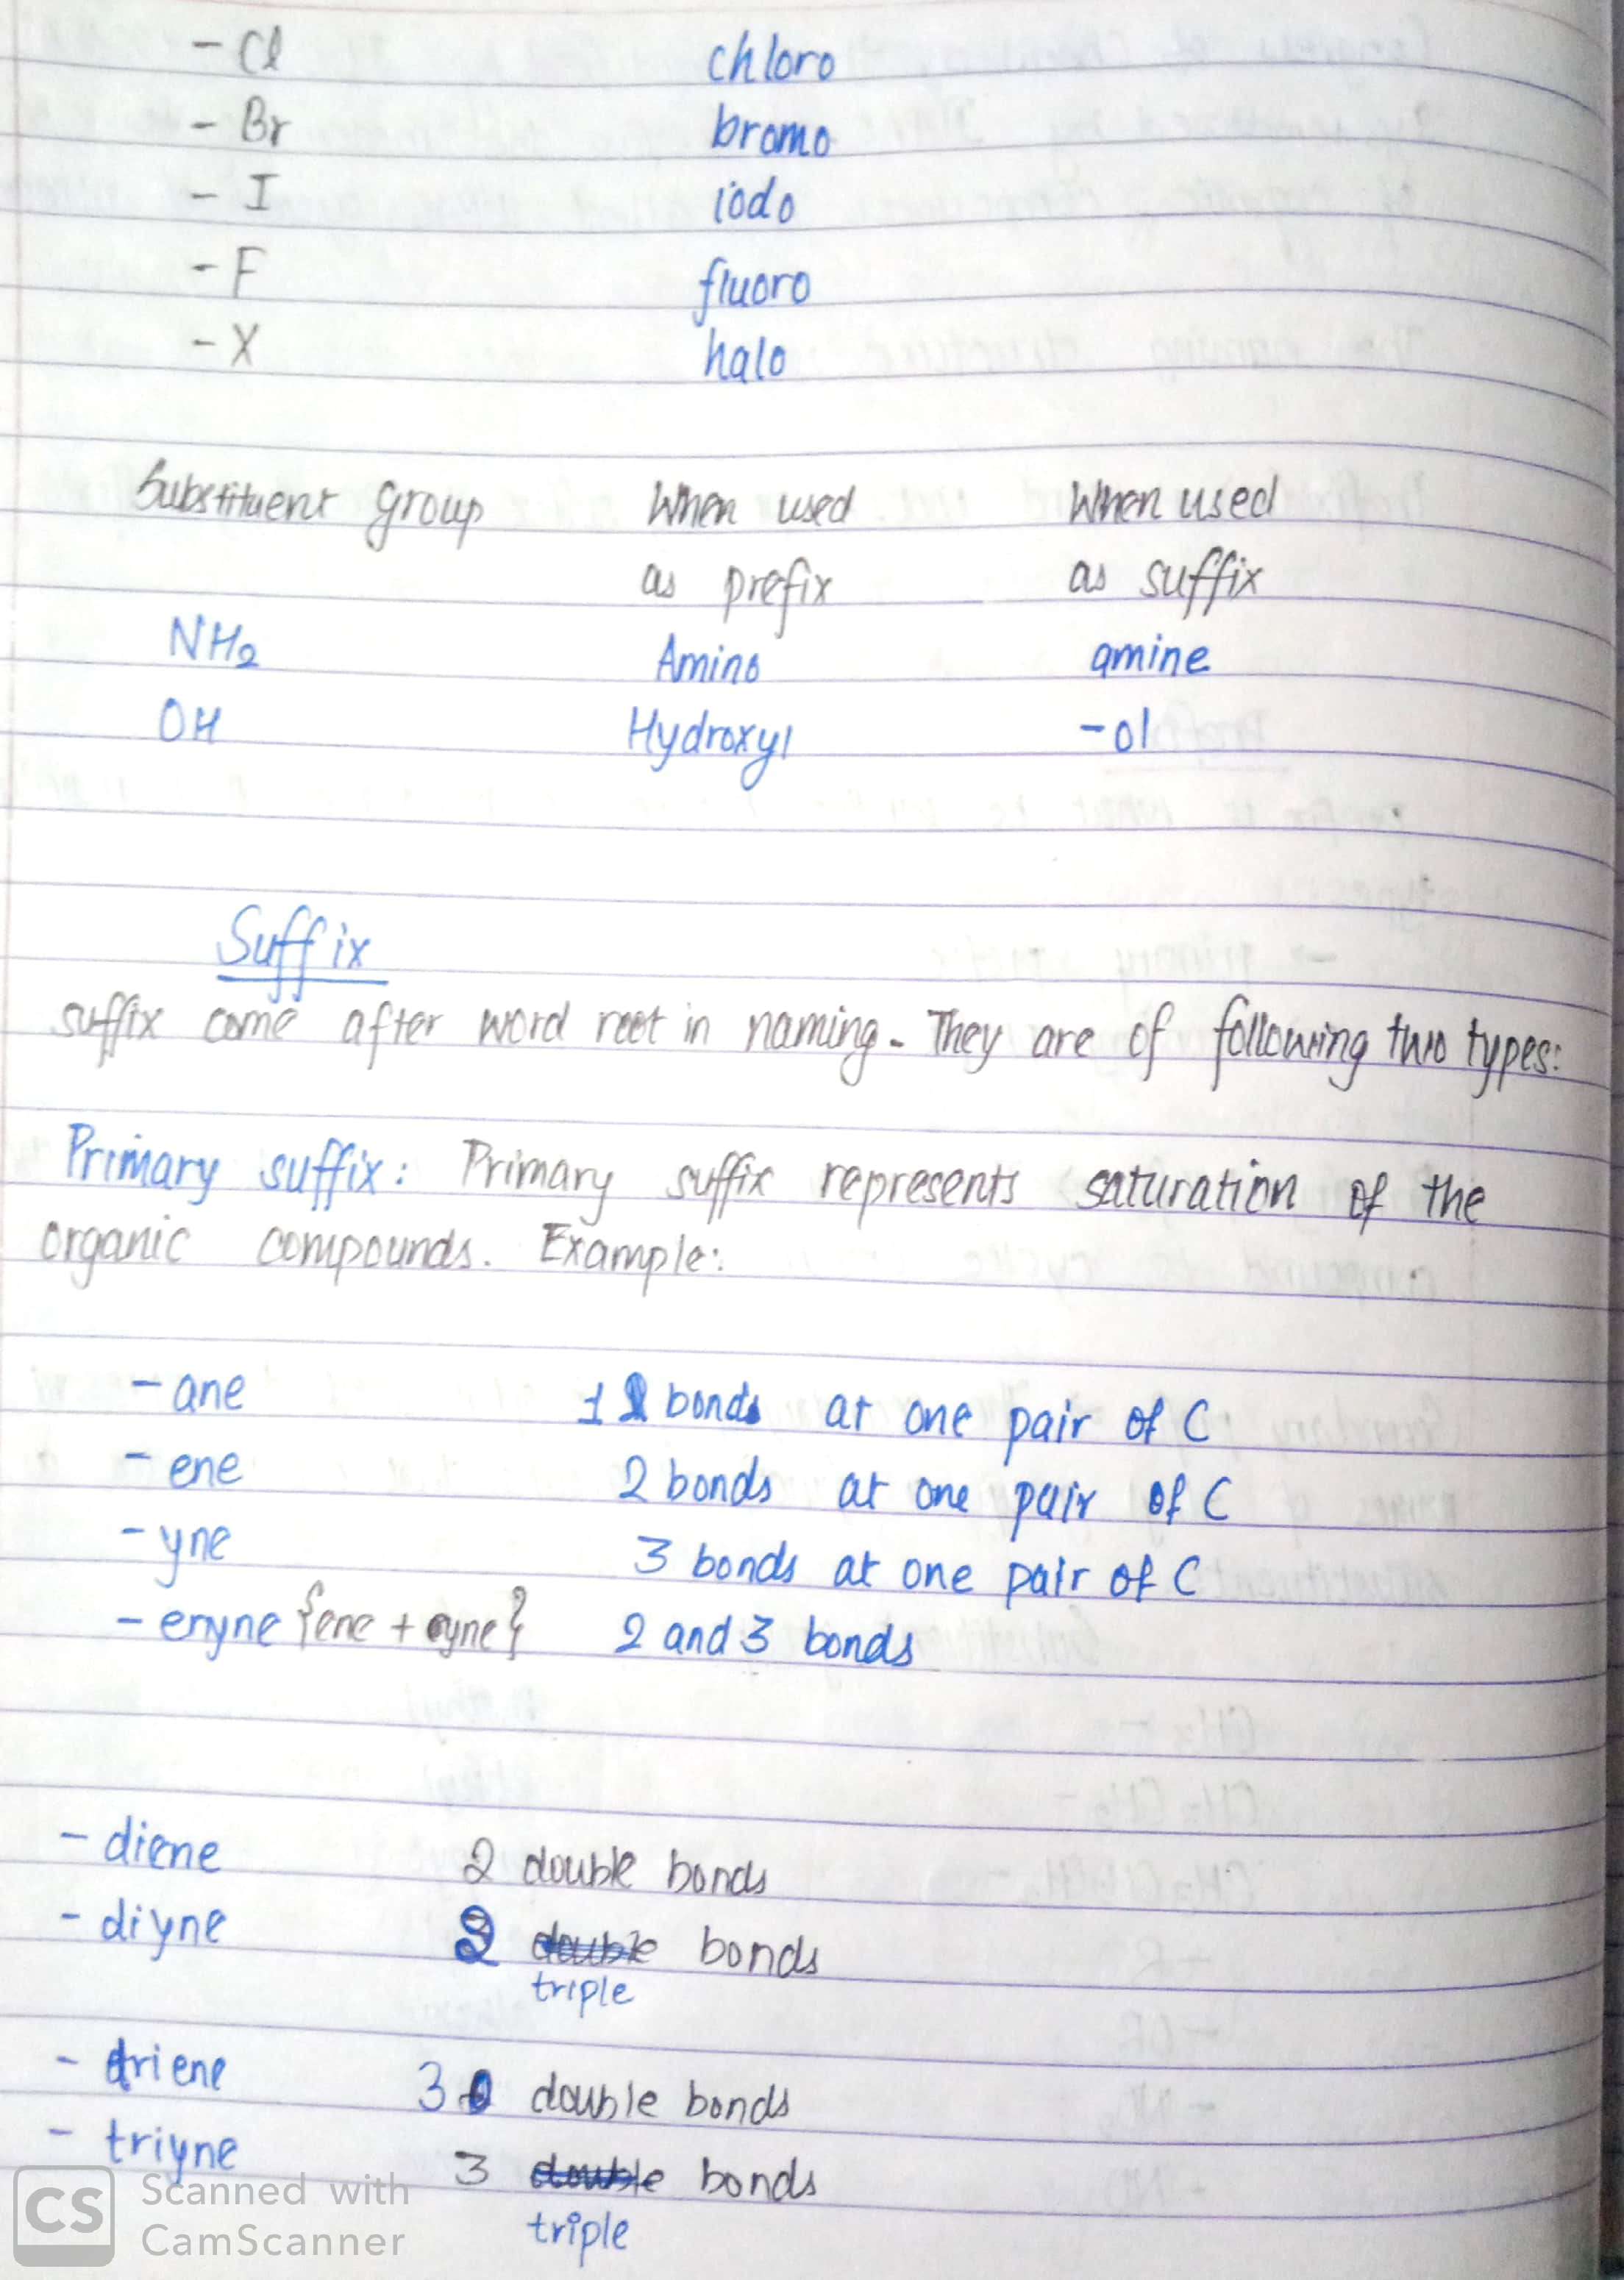 - Cl chloro
- Br bromo
- I iodo
- F fluoro
- X halo
Substituent group When used When used
as prefix as suffix
NH2 Amino amine
OH Hydroxyl -ol
Suffix
suffix come after word root in naming. They are of following two types:
Primary suffix: Primary suffix represents saturation of the
organic compounds. Example:
- ane 1 bonds at one pair of C
- ene 2 bonds at one pair of C
- yne 3 bonds at one pair of C
- enyne {ene + yne} 2 and 3 bonds
- diene 2 double bonds
- diyne 2 double bonds
triple
- triene 3 double bonds
- triyne 3 double bonds
triple
CS Scanned with
CamScanner